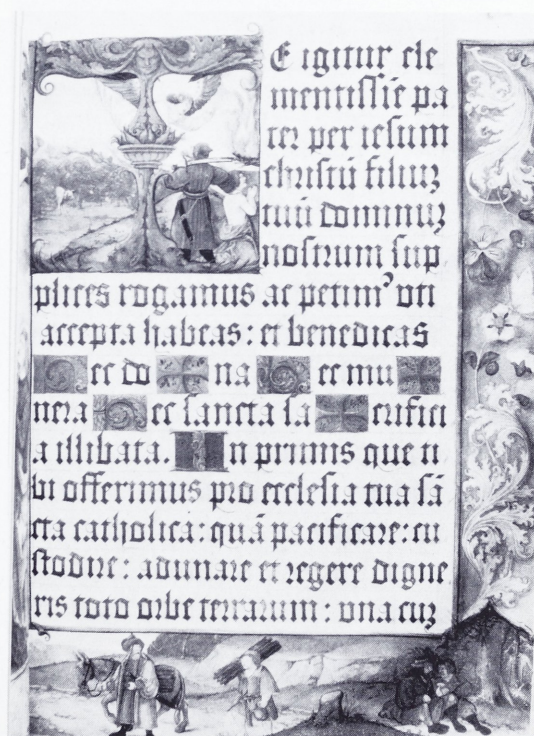 E igitur cle
mentissīe pa
ter per iesum
christū filiuꝫ
tuū dominuꝫ
nostrum sup
plices rogamus ac petimꝰ uti
accepta habeas: et benedicas
ec do na ec mu
nera ec sancta sa crifici
a illibata. In primis que ti
bi offerimus pro ecclesia tua sā
cta catholica: quā pacificare: cu
stodire: adunare et regere digne
ris toto orbe terrarum: una cuꝫ